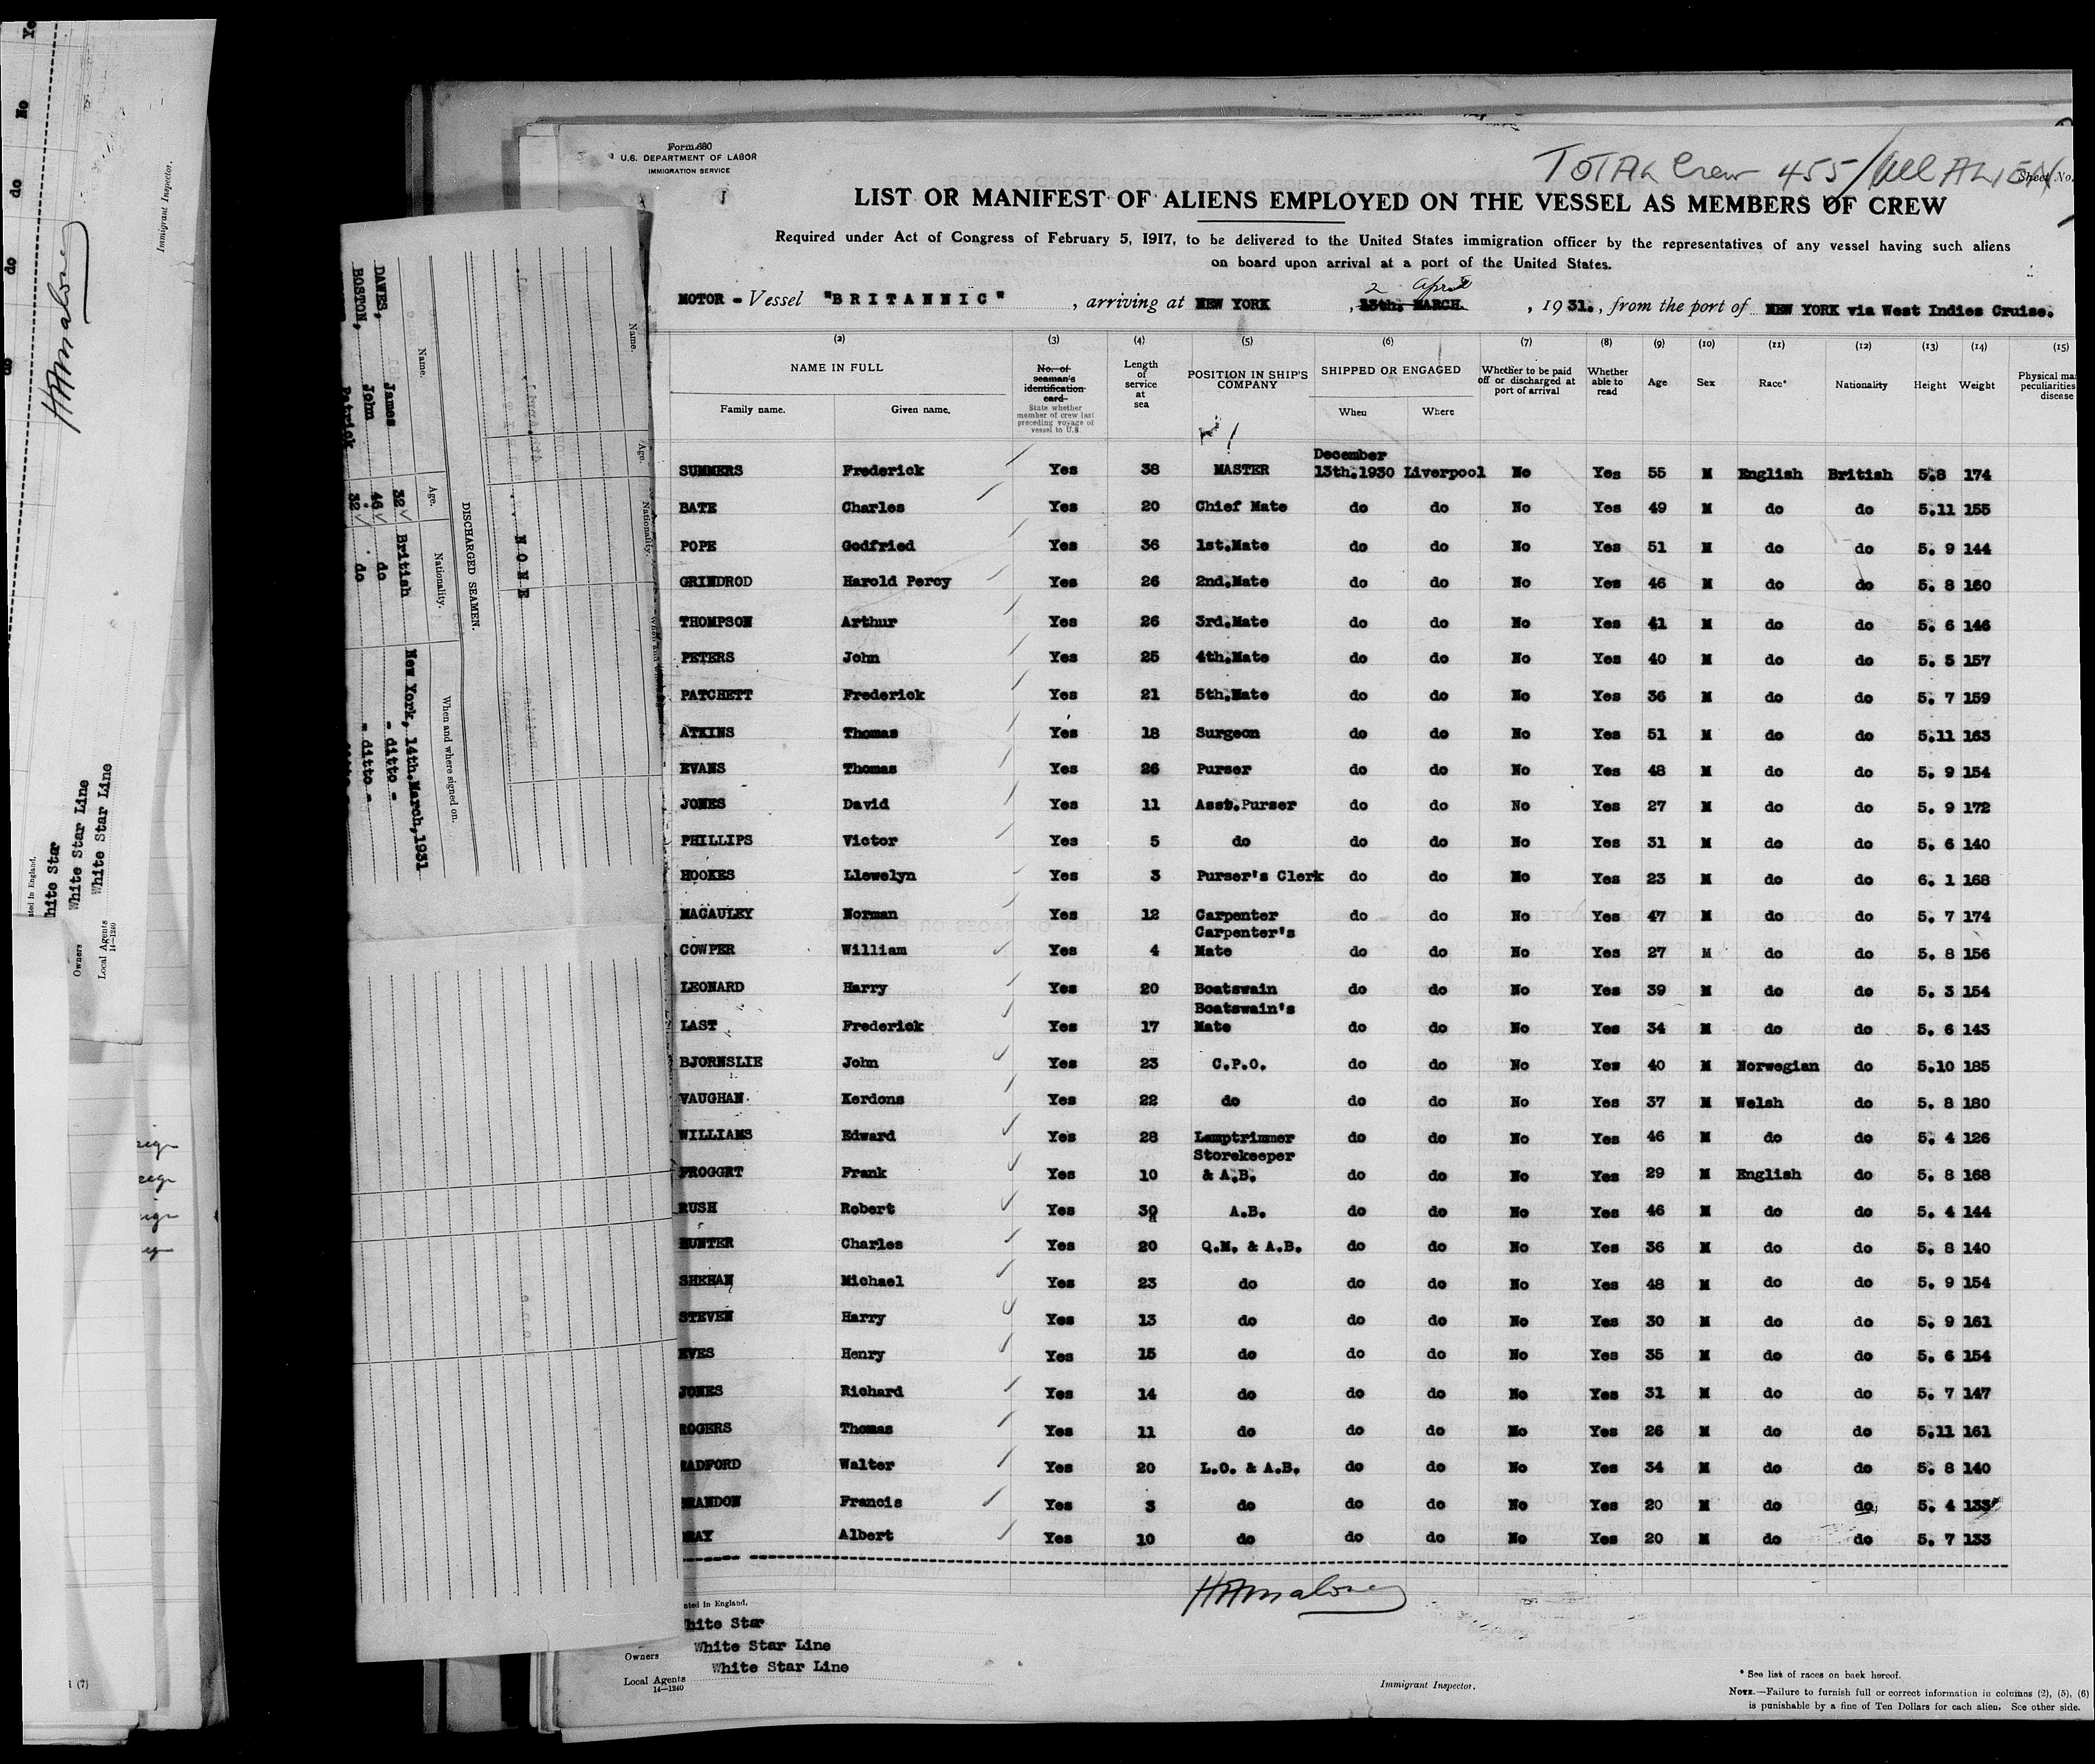 Form 680
U.S. DEPARTMENT OF LABOR
IMMIGRATION SERVICE
TOTAL Crew 455 / All ALIEN
Sheet No.
LIST OR MANIFEST OF ALIENS EMPLOYED ON THE VESSEL AS MEMBERS OF CREW
Required under Act of Congress of February 5, 1917, to be delivered to the United States immigration officer by the representatives of any vessel having such aliens
on board upon arrival at a port of the United States.
2 April
MOTOR - Vessel "BRITANNIC", arriving at NEW YORK, 13th. MARCH., 1931., from the port of NEW YORK via West Indies Cruise.
(2) (3) (4) (5) (6) (7) (8) (9) (10) (11) (12) (13) (14) (15)
NAME IN FULL
Family name. Given name.
No. of seaman's identification card
State whether member of crew last preceding voyage of vessel to U.S.
Length of service at sea
POSITION IN SHIP'S COMPANY
SHIPPED OR ENGAGED
When Where
Whether to be paid off or discharged at port of arrival
Whether able to read
Age Sex Race* Nationality Height Weight
Physical
peculiarities
disease
SUMMERS Frederick Yes 38 MASTER December 13th.1930 Liverpool No Yes 55 M English British 5.8 174
BATE Charles Yes 20 Chief Mate do do No Yes 49 M do do 5.11 155
POPE Godfried Yes 36 1st.Mate do do No Yes 51 M do do 5. 9 144
GRINDROD Harold Percy Yes 26 2nd.Mate do do No Yes 46 M do do 5. 8 160
THOMPSON Arthur Yes 26 3rd.Mate do do No Yes 41 M do do 5. 6 146
PETERS John Yes 25 4th.Mate do do No Yes 40 M do do 5. 5 157
PATCHETT Frederick Yes 21 5th.Mate do do No Yes 36 M do do 5. 7 159
ATKINS Thomas Yes 18 Surgeon do do No Yes 51 M do do 5.11 163
EVANS Thomas Yes 26 Purser do do No Yes 48 M do do 5. 9 154
JONES David Yes 11 Asst.Purser do do No Yes 27 M do do 5. 9 172
PHILLIPS Victor Yes 5 do do do No Yes 31 M do do 5. 6 140
HOOKES Llewelyn Yes 3 Purser's Clerk do do No Yes 23 M do do 6. 1 168
MACAULEY Norman Yes 12 Carpenter do do No Yes 47 M do do 5. 7 174
COWPER William Yes 4 Carpenter's Mate do do No Yes 27 M do do 5. 8 156
LEONARD Harry Yes 20 Boatswain do do No Yes 39 M do do 5. 3 154
LAST Frederick Yes 17 Boatswain's Mate do do No Yes 34 M do do 5. 6 143
BJORNSLIE John Yes 23 C.P.O. do do No Yes 40 M Norwegian do 5.10 185
VAUGHAN Kerdons Yes 22 do do do No Yes 37 M Welsh do 5. 8 180
WILLIAMS Edward Yes 28 Lamptrimmer do do No Yes 46 M do do 5. 4 126
FROGGRT Frank Yes 10 Storekeeper & A.B. do do No Yes 29 M English do 5. 8 168
RUSH Robert Yes 30 A.B. do do No Yes 46 M do do 5. 4 144
HUNTER Charles Yes 20 Q.M. & A.B. do do No Yes 36 M do do 5. 8 140
SHEHAN Michael Yes 23 do do do No Yes 48 M do do 5. 9 154
STEVEN Harry Yes 13 do do do No Yes 30 M do do 5. 9 161
EVES Henry Yes 15 do do do No Yes 35 M do do 5. 6 154
JONES Richard Yes 14 do do do No Yes 31 M do do 5. 7 147
ROGERS Thomas Yes 11 do do do No Yes 26 M do do 5.11 161
RADFORD Walter Yes 20 L.O. & A.B. do do No Yes 34 M do do 5. 8 140
BRANDON Francis Yes 3 do do do No Yes 20 M do do 5. 4 133
Albert Yes 10 do do do No Yes 20 M do do 5. 7 133
HAMaloney
White Star
Owners White Star Line
Local Agents White Star Line
14-1240
Immigrant Inspector.
* See list of races on back hereof.
NOTE.—Failure to furnish full or correct information in columns (2), (5), (6)
is punishable by a fine of Ten Dollars for each alien. See other side.
Name. Age. Nationality.
NONE
DISCHARGED SEAMEN.
Name. Age. Nationality. When and where signed on.
DAWES, James 32 British New York, 14th.March,1931
BOSTON, John 46 do - ditto -
Patrick 32 do - ditto -
No
do
do
do
HAMaloney
Immigrant Inspector.
hite Star
Owners White Star Line
Local Agents White Star Line
14-1240